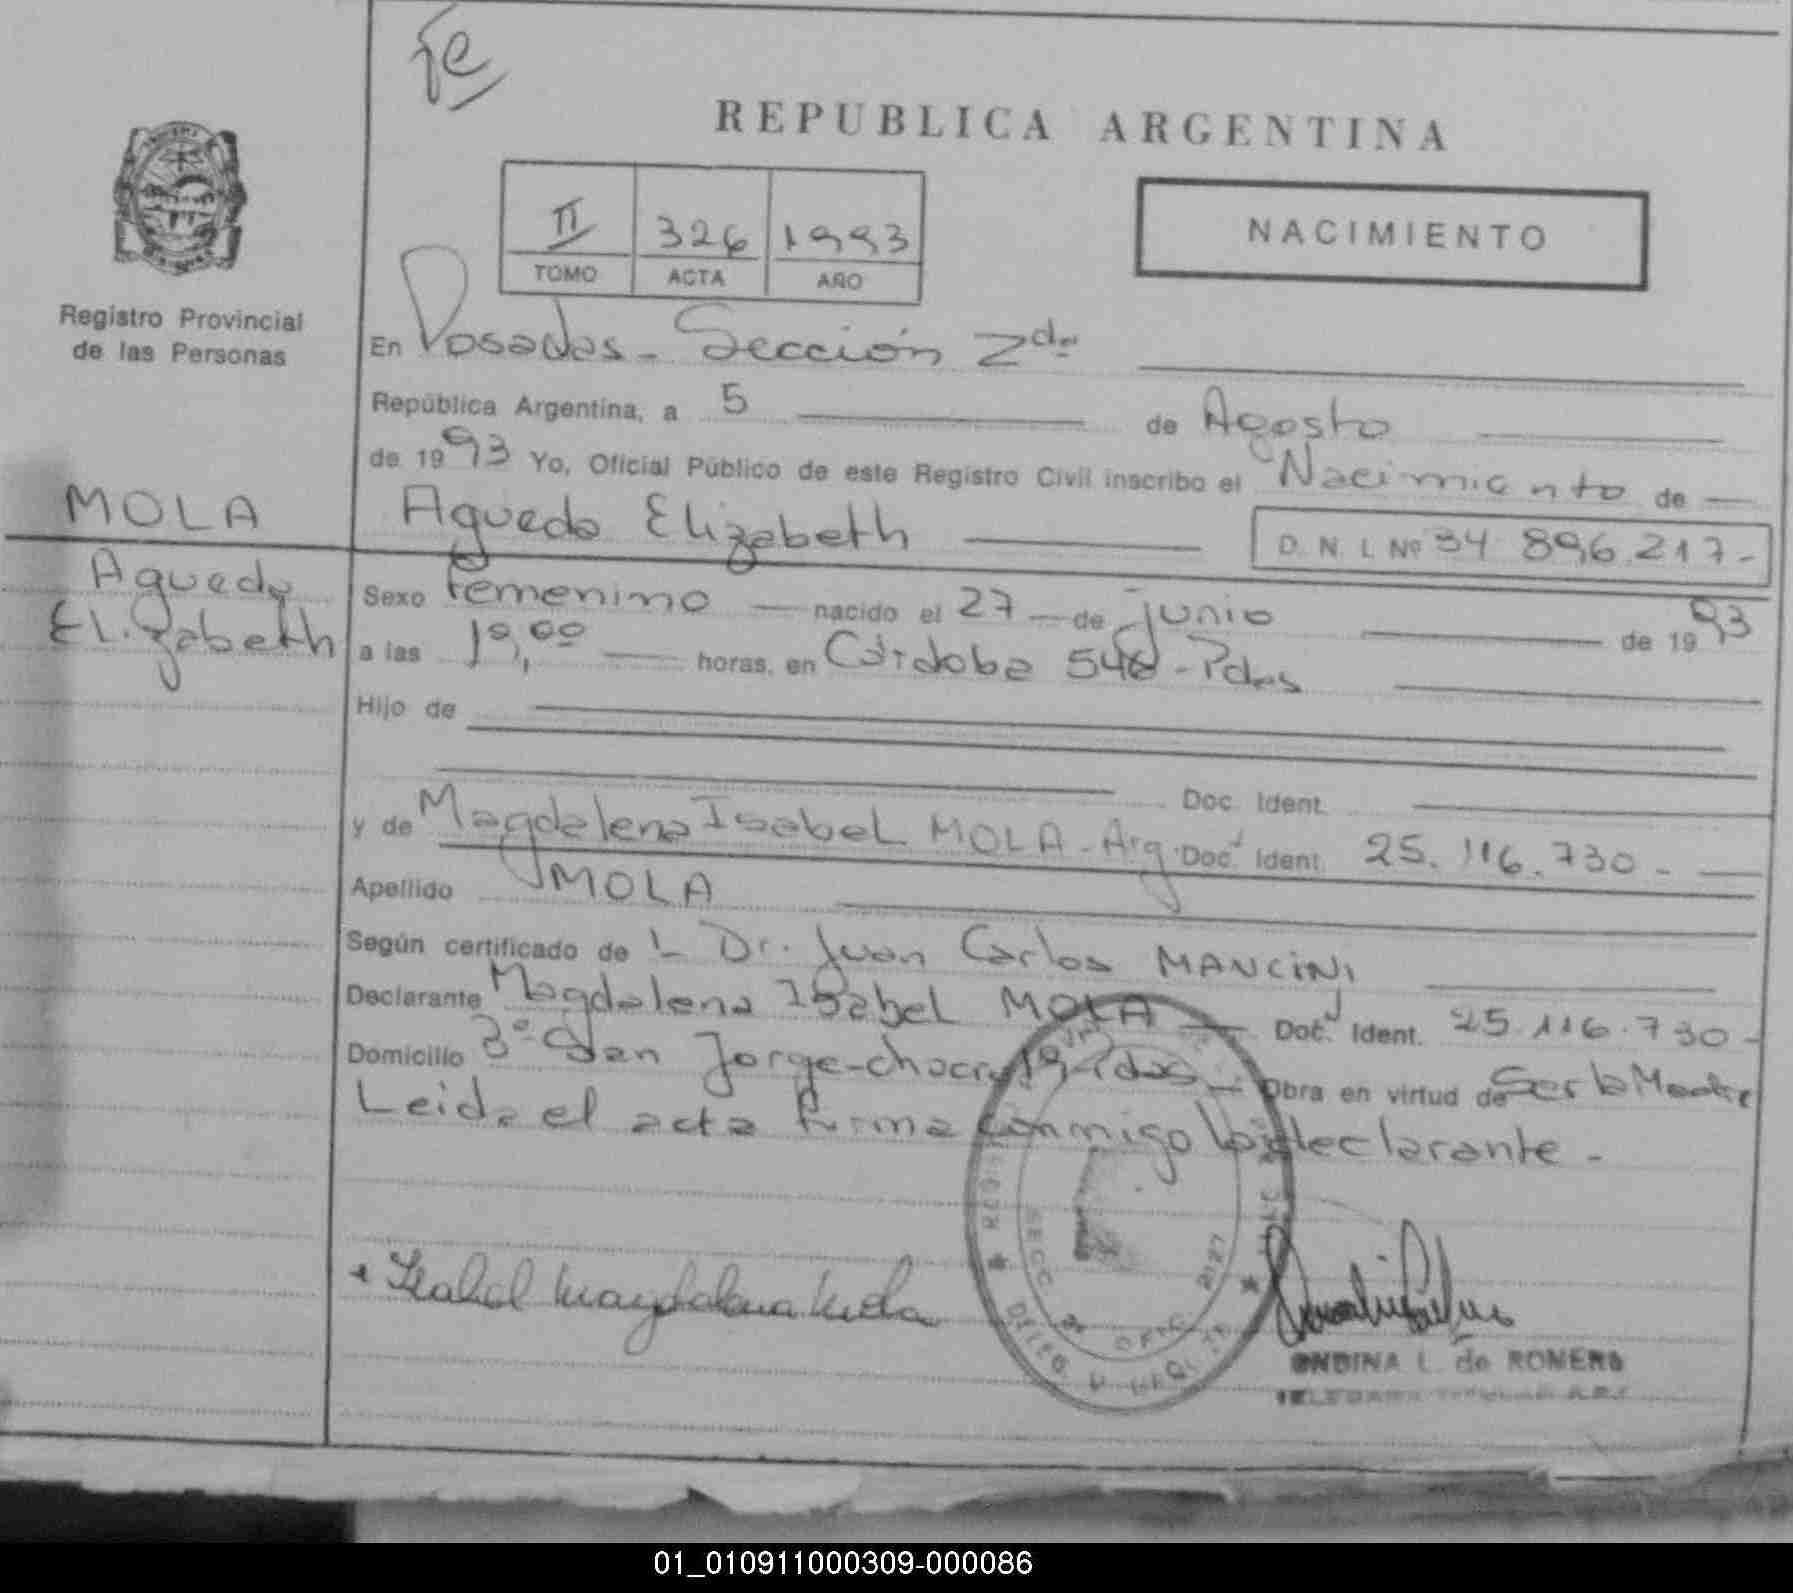 Fe
REPUBLICA ARGENTINA
II 326 1993
TOMO ACTA AÑO
NACIMIENTO
Registro Provincial
de las Personas
En Posadas - Sección 2da
República Argentina, a 5 de Agosto
de 1993 Yo, Oficial Público de este Registro Civil inscribo el Nacimiento de
MOLA
Agueda Elizabeth
D. N. I. Nº 34 896.217-
Agueda
Elizabeth
Sexo femenino nacido el 27 de junio de 1993
a las 19,00 horas, en Córdoba 546 - Pdas
Hijo de
Doc. Ident.
y de Magdalena Isabel MOLA - Arg. Doc. Ident. 25.116.730.-
Apellido MOLA
Según certificado de l- Dr. Juan Carlos MANCINI
Declarante Magdalena Isabel MOLA Doc. Ident. 25.116.730-
Domicilio Bº San Jorge - chacra Pdas - Obra en virtud de Ser la Madre
Leida el acta firma conmigo la declarante.-
Isabel Magdalena Mola
SECC 2ª OFIC 2127
ONDINA L. de ROMERO
01_010911000309-000086